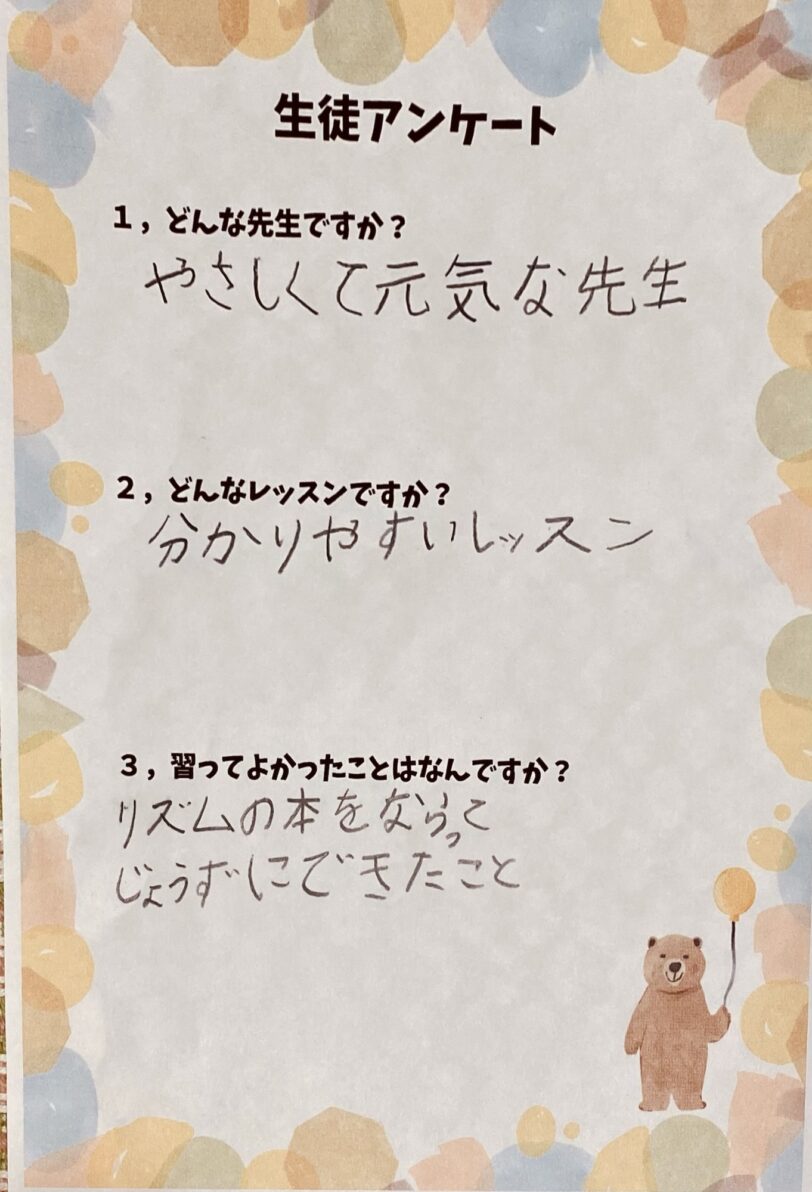 生徒アンケート
1，どんな先生ですか？
やさしくて元気な先生
2，どんなレッスンですか？
分かりやすいレッスン
3，習ってよかったことはなんですか？
リズムの本をならって
じょうずにできたこと